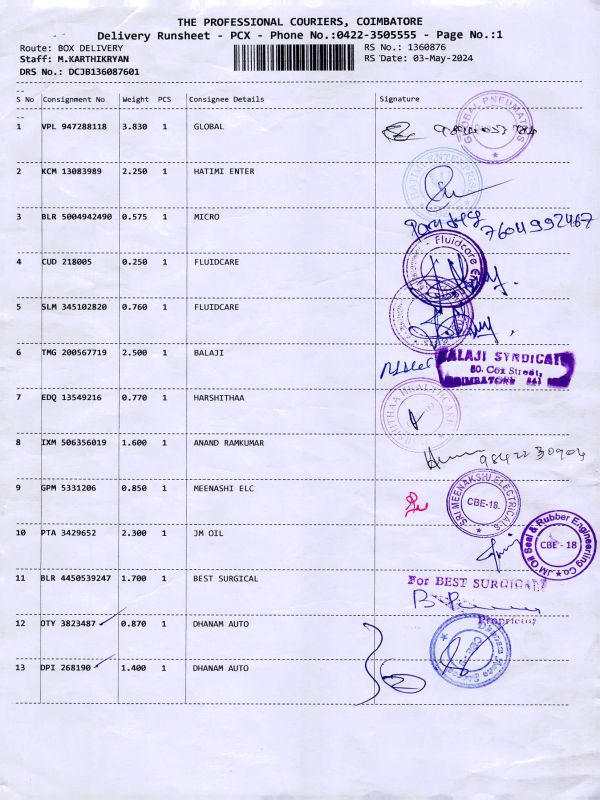 THE PROFESSIONAL COURIERS, COIMBATORE
Delivery Runsheet - PCX - Phone No.:0422-3505555 - Page No.:1
Route: BOX DELIVERY RS No.: 1360876
Staff: M.KARTHIKRYAN RS Date: 03-May-2024
DRS No.: DCJB136087601
S No Consignment No Weight PCS Consignee Details Signature
1 VPL 947288118 3.830 1 GLOBAL
GLOBAL PNEUMATICS
2 KCM 13083989 2.250 1 HATIMI ENTER
HATIMI ENTERPRISES
3 BLR 5004942490 0.575 1 MICRO
7604992467
4 CUD 218005 0.250 1 FLUIDCARE
Fluidcare
5 SLM 345102820 0.760 1 FLUIDCARE
6 TMG 200567719 2.500 1 BALAJI
BALAJI SYNDICATE
80, Cox Street,
COIMBATORE 641
7 EDQ 13549216 0.770 1 HARSHITHAA
HARSHITHAA HEALTHCARE
8 IXM 506356019 1.600 1 ANAND RAMKUMAR
9842230904
9 GPM 5331206 0.850 1 MEENASHI ELC
SRI MEENAKSHI ELECTRICALS
CBE-18.
10 PTA 3429652 2.300 1 JM OIL
JM Oil Seal & Rubber Engineering Co
CBE - 18
11 BLR 4450539247 1.700 1 BEST SURGICAL
For BEST SURGICAL
Proprietor
12 OTY 3823487 0.870 1 DHANAM AUTO
13 DPI 268190 1.400 1 DHANAM AUTO